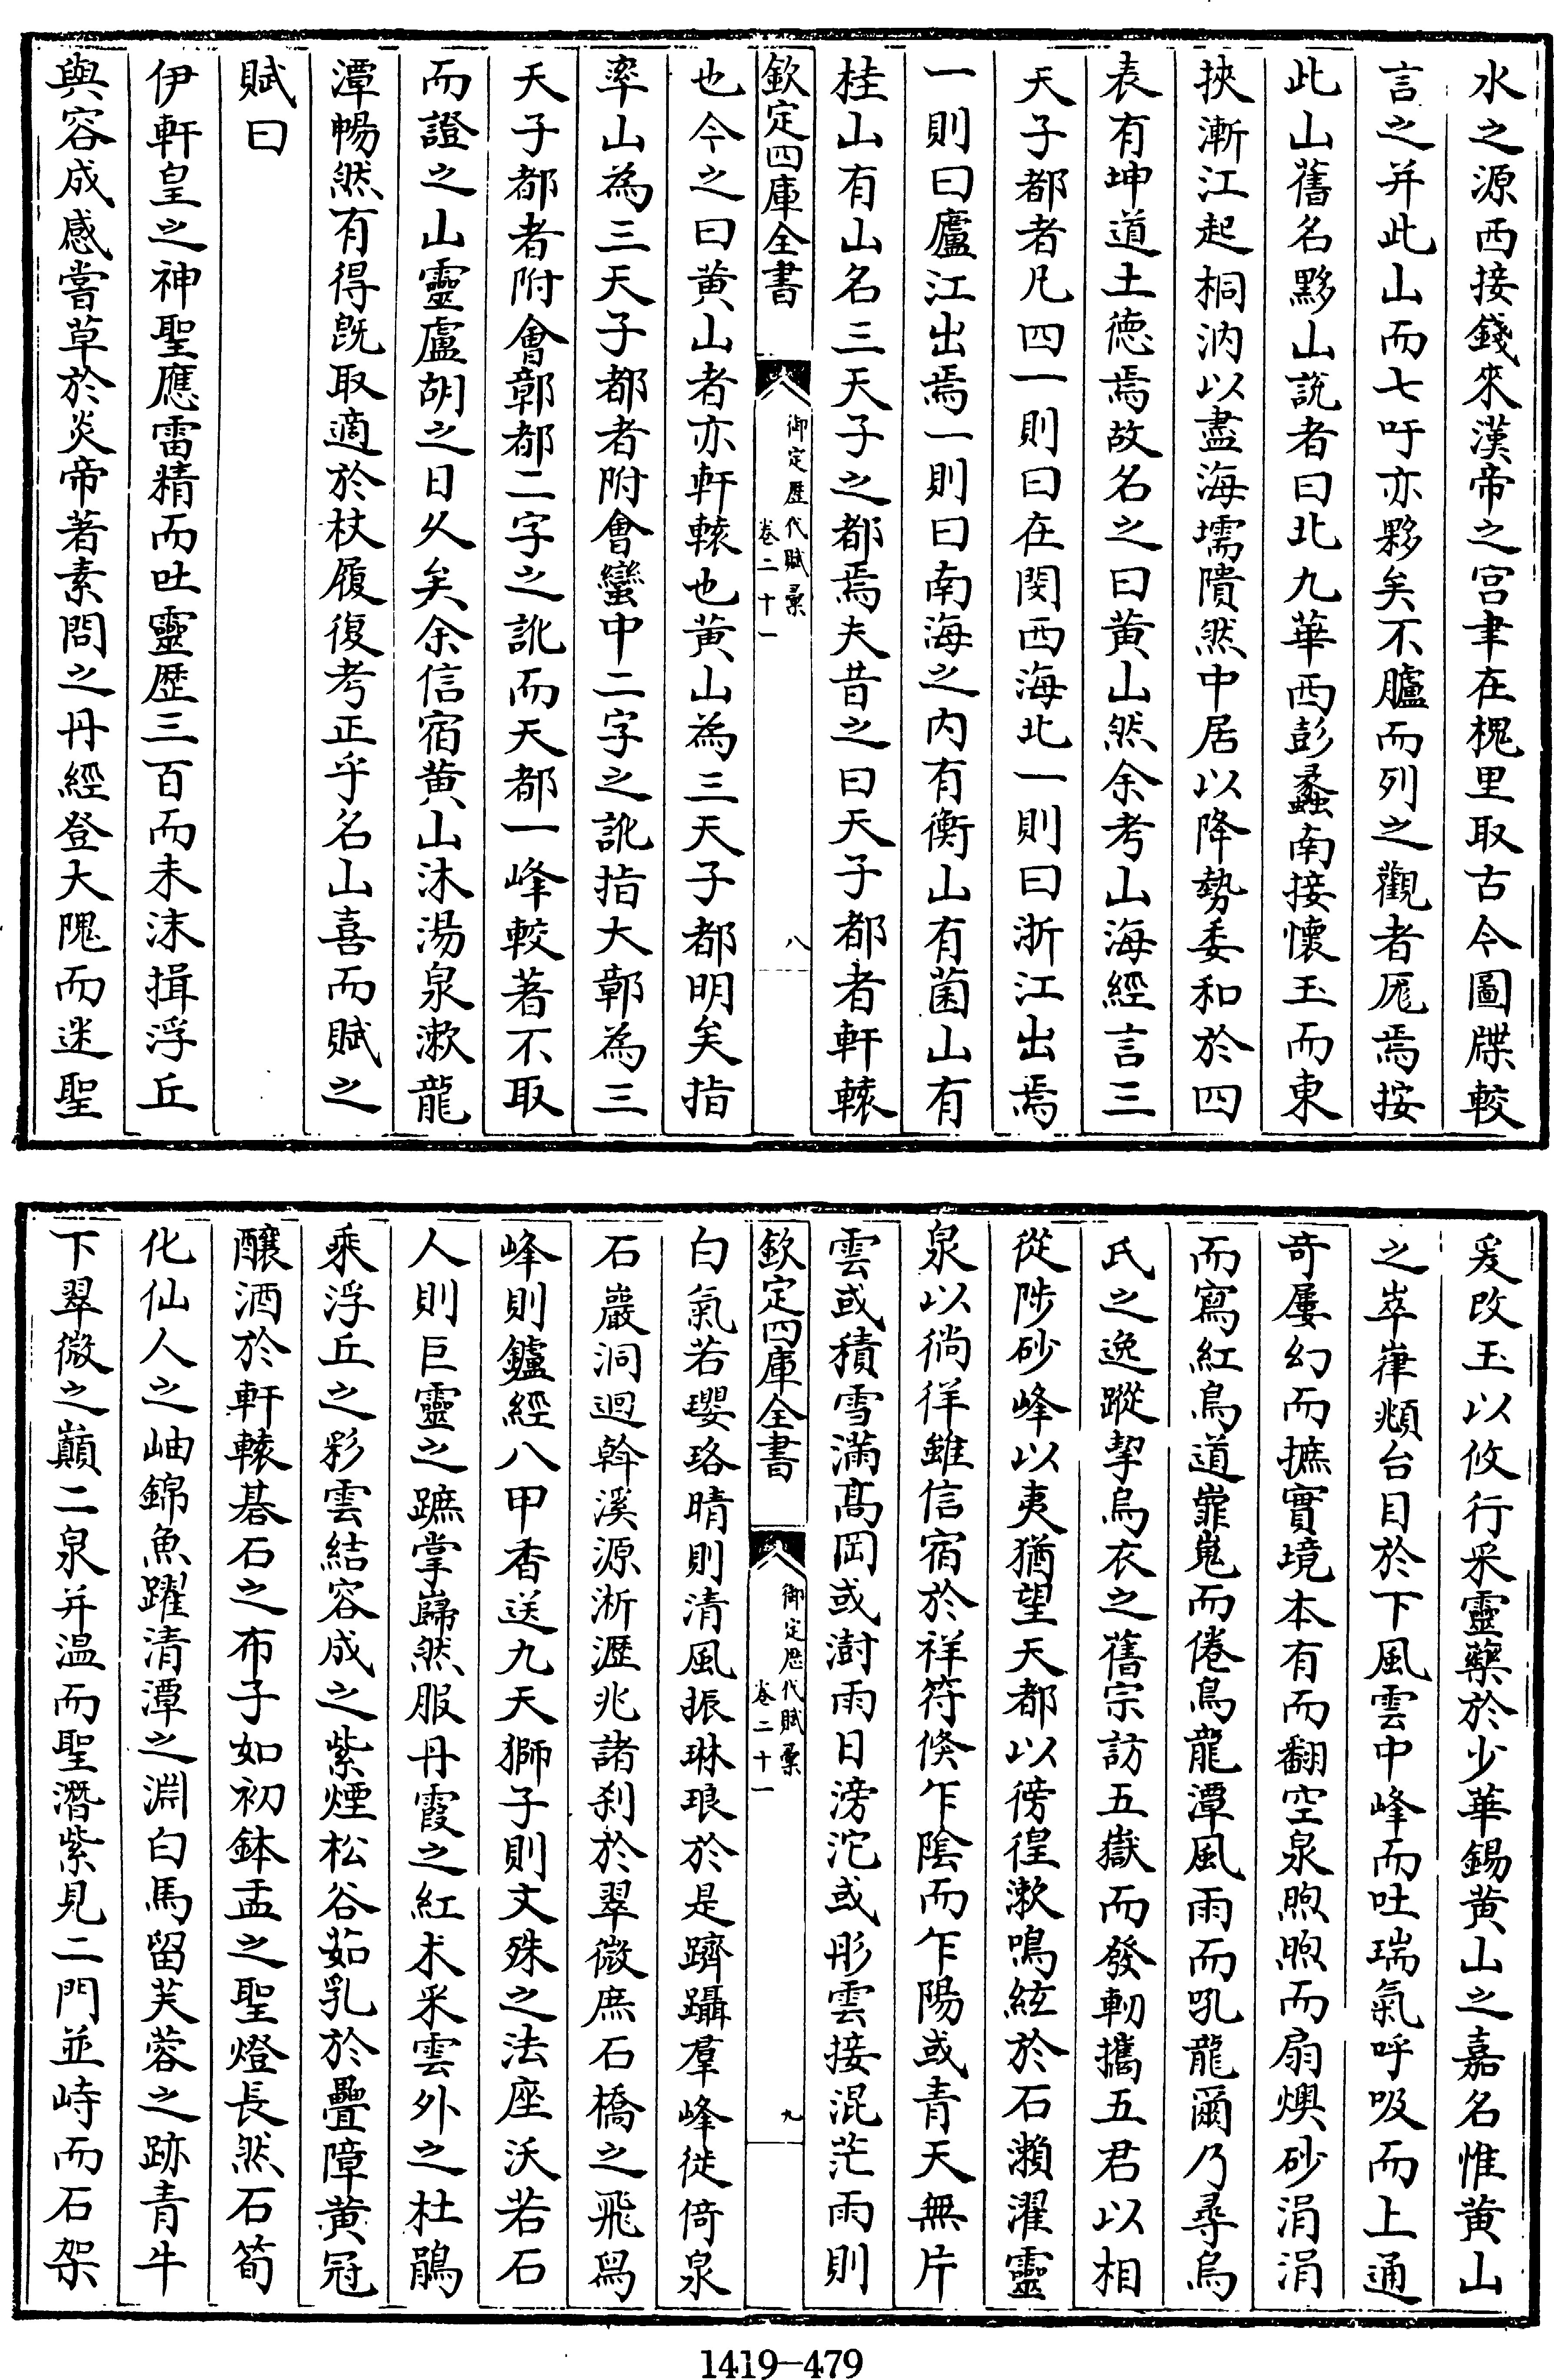 水之源西接錢來漢帝之宮聿在槐里取古今圖牒較
言之并此山而七吁亦夥矣不臚而列之觀者厖焉按
此山舊名黟山說者曰北九華西彭蠡南接懷玉而東
挾漸江起桐汭以盡海壖隤然中居以降勢委和於四
表有坤道土德焉故名之曰黃山然余考山海經言三
天子都者凡四一則曰在閩西海北一則曰浙江出焉
一則曰廬江出焉一則曰南海之内有衡山有菌山有
桂山有山名三天子之都焉夫昔之曰天子都者軒轅
欽定四庫全書
御定歷代賦彙
卷二十一
八
也今之曰黃山者亦軒轅也黃山為三天子都明矣指
率山為三天子都者附會蠻中二字之訛指大鄣為三
天子都者附會鄣都二字之訛而天都一峰較著不取
而證之山靈盧胡之日久矣余信宿黃山沐湯泉漱龍
潭暢然有得既取適於杖履復考正乎名山喜而賦之
賦曰
伊軒皇之神聖應雷精而吐靈歷三百而未沬揖浮丘
與容成感嘗草於炎帝著素問之丹經登大隗而迷聖
爰改玉以攸行采靈藥於少華錫黃山之嘉名惟黃山
之崒嵂頫台目於下風雲中峰而吐瑞氣呼吸而上通
奇屢幻而摭實境本有而翻空泉煦煦而扇燠砂涓涓
而寫紅鳥道巃嵸而倦鳥龍潭風雨而吼龍爾乃尋烏
氏之逸蹤挈烏衣之舊宗訪五嶽而發軔攜五君以相
從陟砂峰以夷猶望天都以徬徨漱鳴絃於石瀨濯靈
泉以徜徉雖信宿於祥符倏乍陰而乍陽或青天無片
雲或積雪滿高岡或澍雨日滂沱或彤雲接混茫雨則
欽定四庫全書
御定歷代賦彙
卷二十一
九
白氣若瓔珞晴則清風振琳琅於是躋躡羣峰徙倚泉
石巖洞迴斡溪源淅瀝兆諸刹於翠微庶石橋之飛舄
峰則鑪經八甲香送九天獅子則文殊之法座沃若石
人則巨靈之蹠掌巋然服丹霞之紅朮采雲外之杜鵑
乘浮丘之彩雲結容成之紫煙松谷茹乳於疊障黃冠
釀酒於軒轅碁石之布子如初鉢盂之聖燈長然石筍
化仙人之岫錦魚躍清潭之淵白馬留芙蓉之跡青牛
下翠微之巔二泉并温而聖潛紫見二門並峙而石架
1419—479